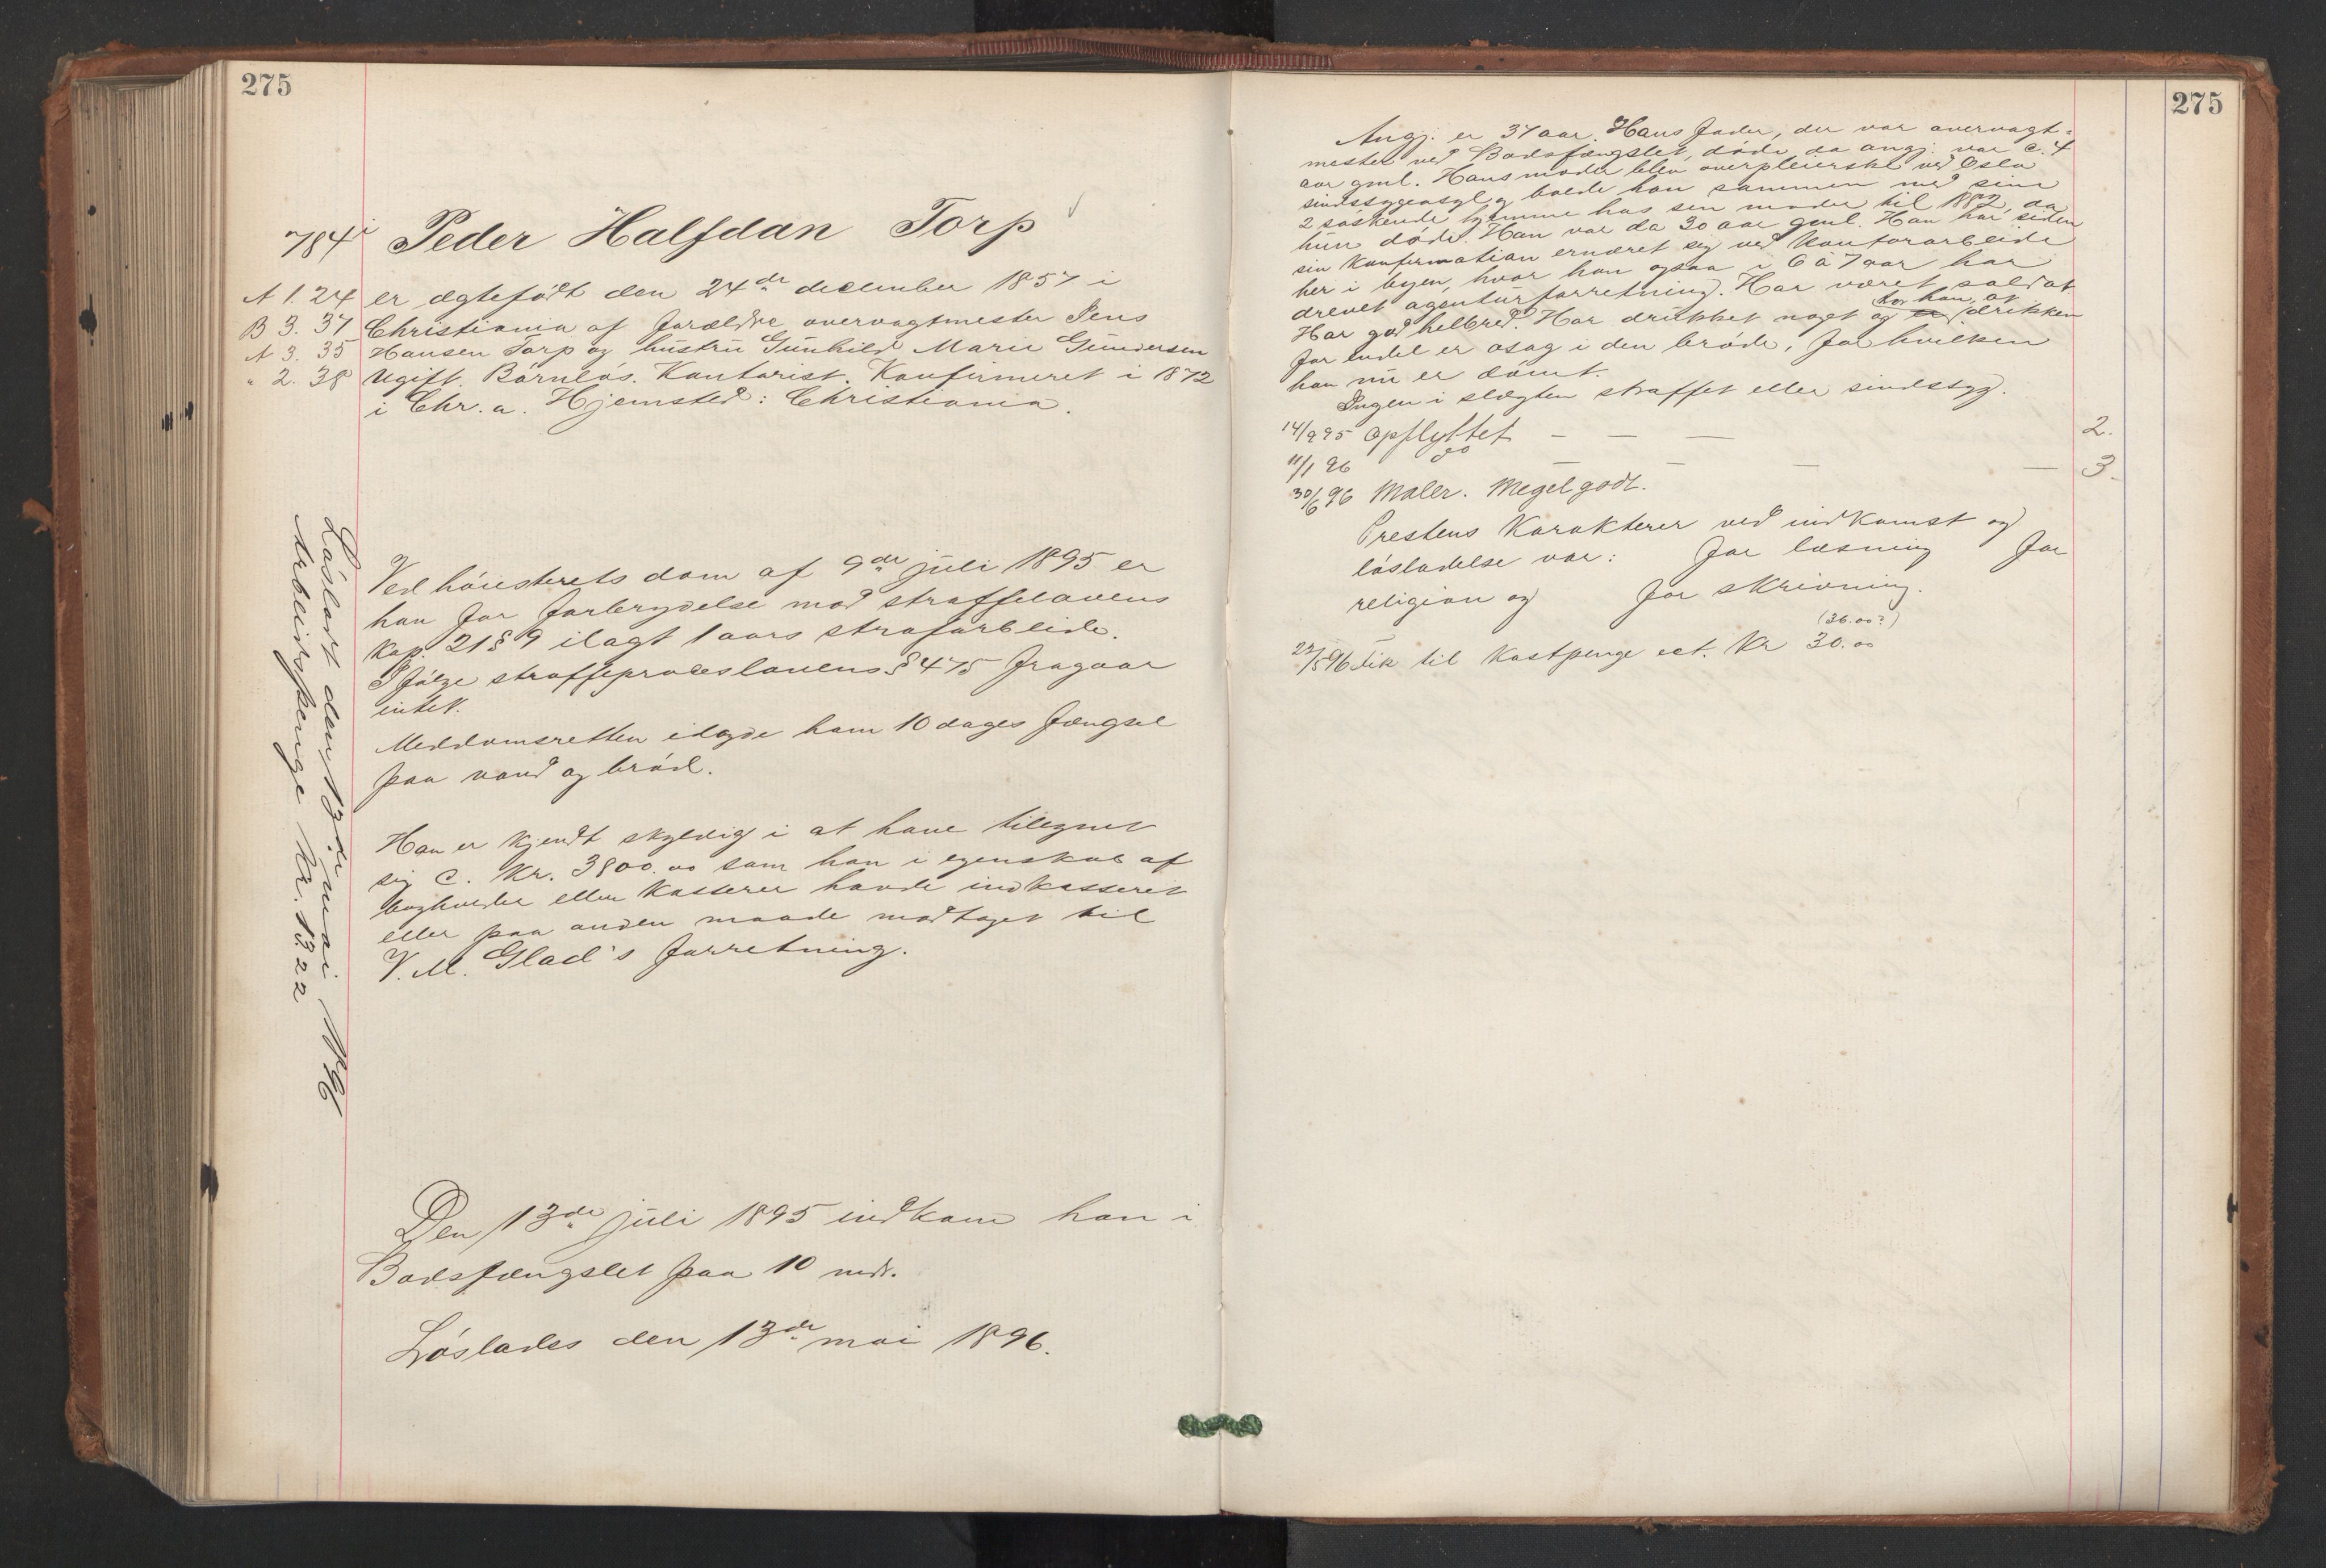 275
784 i Peder Halfdan Torp
A 1. 24 er ægtefødt den 24de december 1857 i
B 3. 37 Christiania af forældre overvagtmester Jens
A 3. 35 Hansen Torp og hustru Gunhild Marie Gundersen
" 2. 38 Ugift. Barnløs. Kontorist. Konfirmeret i 1872
i Chr.a. Hjemsted: Christiania.
Løsladt den 13de mai 1896
Arbeidspenge Kr. 13.22
Ved høiesterets dom af 9de juli 1895 er
han for forbrydelse mod straffelovens
Kap. 21 § 9 ilagt 1 aars strafarbeide.
Ifølge straffeproceslovens § 475 fragaar
intet.
Meddomsretten idøgde ham 10 dages fængsel
paa vand og brød.
Han er kjendt skyldig i at have tilegnet
sig c. Kr. 3800.00 som han i egenskab af
bogholder eller kasserer havde indkasseret
eller paa anden maade modtaget til
V. M. Glad's forretning.
Den 13de juli 1895 indkom han i
Bodsfængslet paa 10 mdr.
Løslades den 13de mai 1896.
275
Angj. er 37 aar. Hans fader, der var overvagt-
mester ved Bodsfængslet, døde da angj. var c. 4
aar gml. Hans moder blev overpleierske ved Oslo
sindssygeasyl og boede han sammen med sine
2 søskende hjemme hos sin moder til 1887, da
hun døde. Han var da 30 aar gml. Han har siden
sin Konfirmation ernæret sig ved Kontorarbeide
her i byen, hvor han ogsaa i 6 à 7 aar har
drevet agenturforretning. Har været soldat.
Har god helbred. Har drukket noget og tror han, at drikken
for endel er aasag i den brøde, for hvilken
han nu er dømt.
Ingen i slægten straffet eller sindssyg.
14/9 95 Opflyttet — — — 2.
11/1 96 do — — — — 3.
30/6 96 Maler. Meget godt.
Prestens Karakterer ved indkomst og
løsladelse var: for læsning for
religion og for skrivning.
(36.00?)
22/5 96 Fik til Kostpenge ect. Kr 30.00